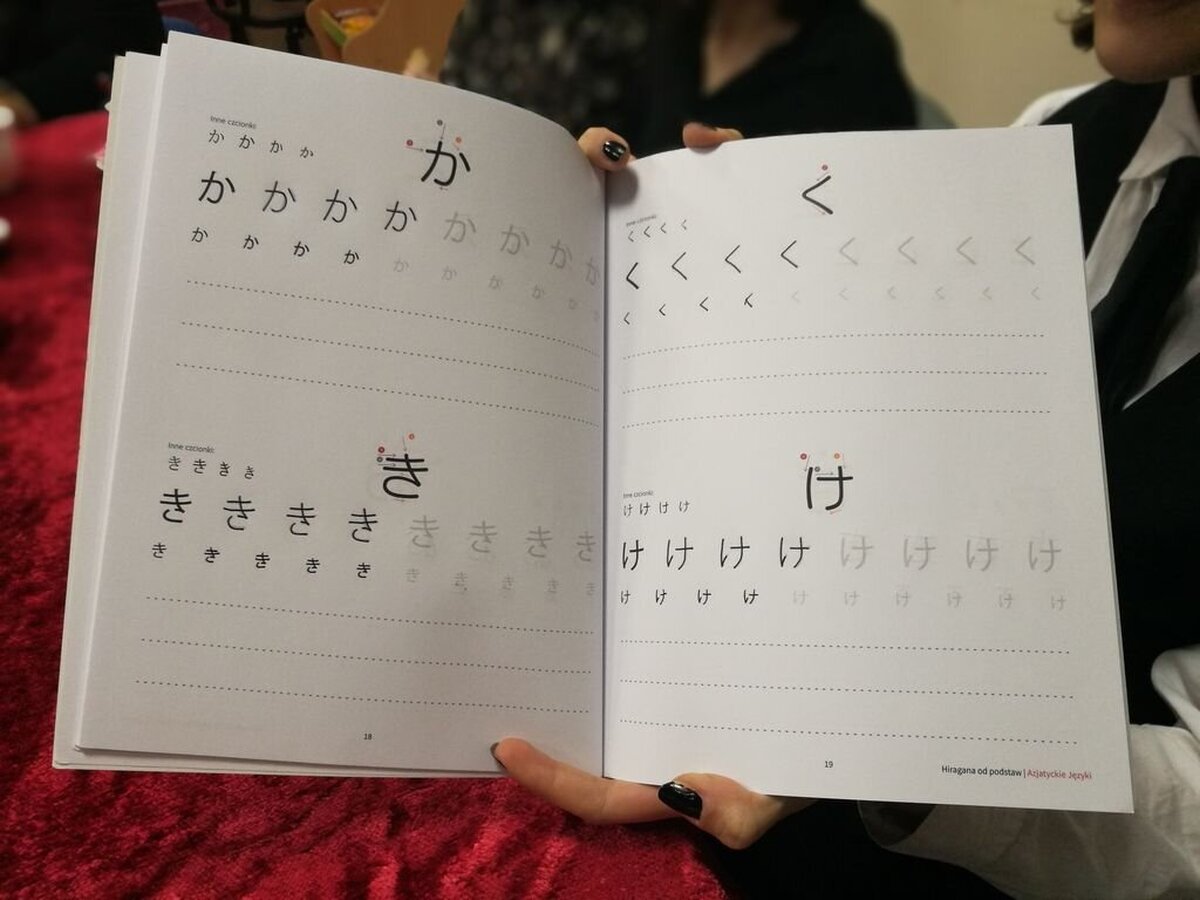 か
Inne czcionki:
か か か か
か か か か か か か か
か か か か か か か か か
き
Inne czcionki:
き き き き
き き き き き き き き
き き き き き き き き き き
18
く
Inne czcionki:
く く く く
く く く く く く く く
く く く く く く く く く く
け
Inne czcionki:
け け け け
け け け け け け け け
け け け け け け け け け け
19
Hiragana od podstaw | Azjatyckie Języki